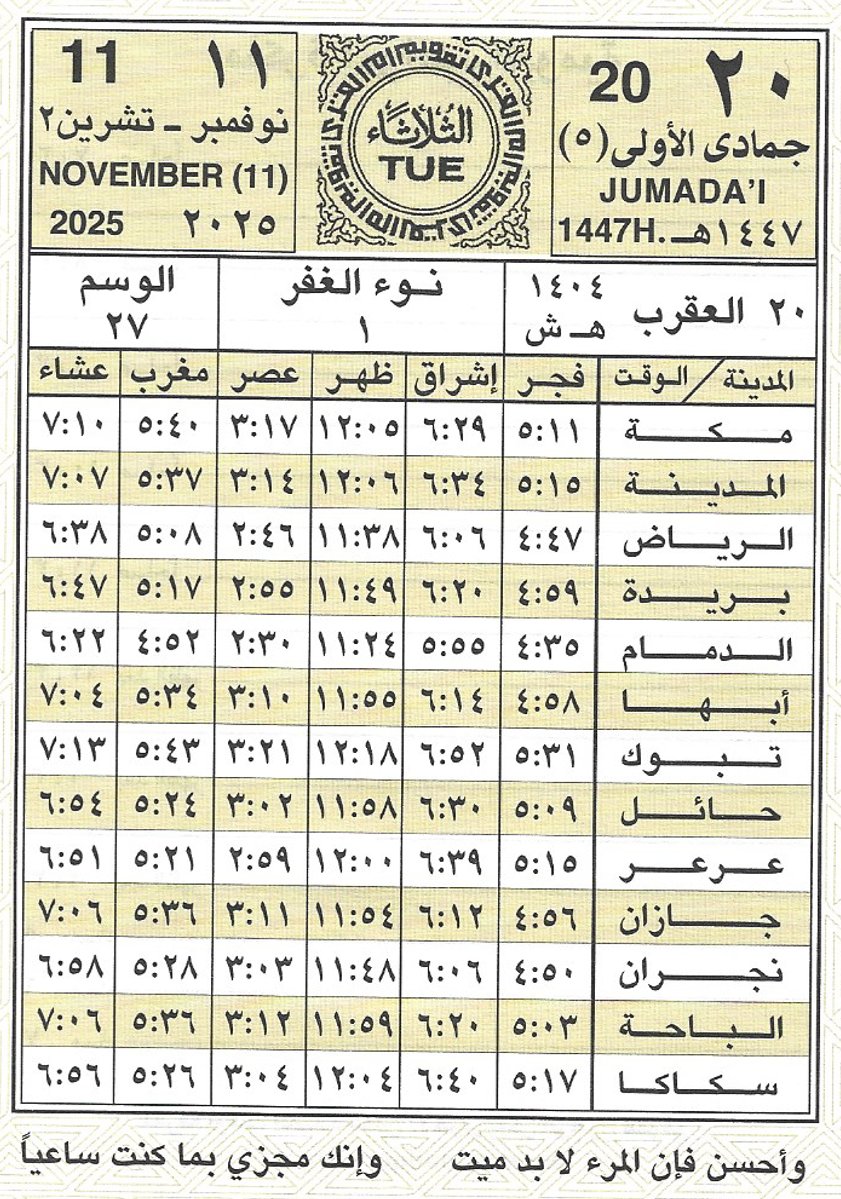 ٢٠ 20
جمادى الأولى (٥)
JUMADA'I
1447H. ١٤٤٧هـ
الثلاثاء
TUE
11 ١١
نوفمبر - تشرين٢
NOVEMBER (11)
2025 ٢٠٢٥
٢٠ العقرب ١٤٠٤ هـ ش
نوء الغفر
١
الوسم
٢٧
المدينة / الوقت فجر إشراق ظهر عصر مغرب عشاء
مكة ٥:١١ ٦:٢٩ ١٢:٠٥ ٣:١٧ ٥:٤٠ ٧:١٠
المدينة ٥:١٥ ٦:٣٤ ١٢:٠٦ ٣:١٤ ٥:٣٧ ٧:٠٧
الرياض ٤:٤٧ ٦:٠٦ ١١:٣٨ ٢:٤٦ ٥:٠٨ ٦:٣٨
بريدة ٤:٥٩ ٦:٢٠ ١١:٤٩ ٢:٥٥ ٥:١٧ ٦:٤٧
الدمام ٤:٣٥ ٥:٥٥ ١١:٢٤ ٢:٣٠ ٤:٥٢ ٦:٢٢
أبها ٤:٥٨ ٦:١٤ ١١:٥٥ ٣:١٠ ٥:٣٤ ٧:٠٤
تبوك ٥:٣١ ٦:٥٢ ١٢:١٨ ٣:٢١ ٥:٤٣ ٧:١٣
حائل ٥:٠٩ ٦:٣٠ ١١:٥٨ ٣:٠٢ ٥:٢٤ ٦:٥٤
عرعر ٥:١٥ ٦:٣٩ ١٢:٠٠ ٢:٥٩ ٥:٢١ ٦:٥١
جازان ٤:٥٦ ٦:١٢ ١١:٥٤ ٣:١١ ٥:٣٦ ٧:٠٦
نجران ٤:٥٠ ٦:٠٦ ١١:٤٨ ٣:٠٣ ٥:٢٨ ٦:٥٨
الباحة ٥:٠٣ ٦:٢٠ ١١:٥٩ ٣:١٢ ٥:٣٦ ٧:٠٦
سكاكا ٥:١٧ ٦:٤٠ ١٢:٠٤ ٣:٠٤ ٥:٢٦ ٦:٥٦
وأحسن فإن المرء لا بد ميت وإنك مجزي بما كنت ساعياً